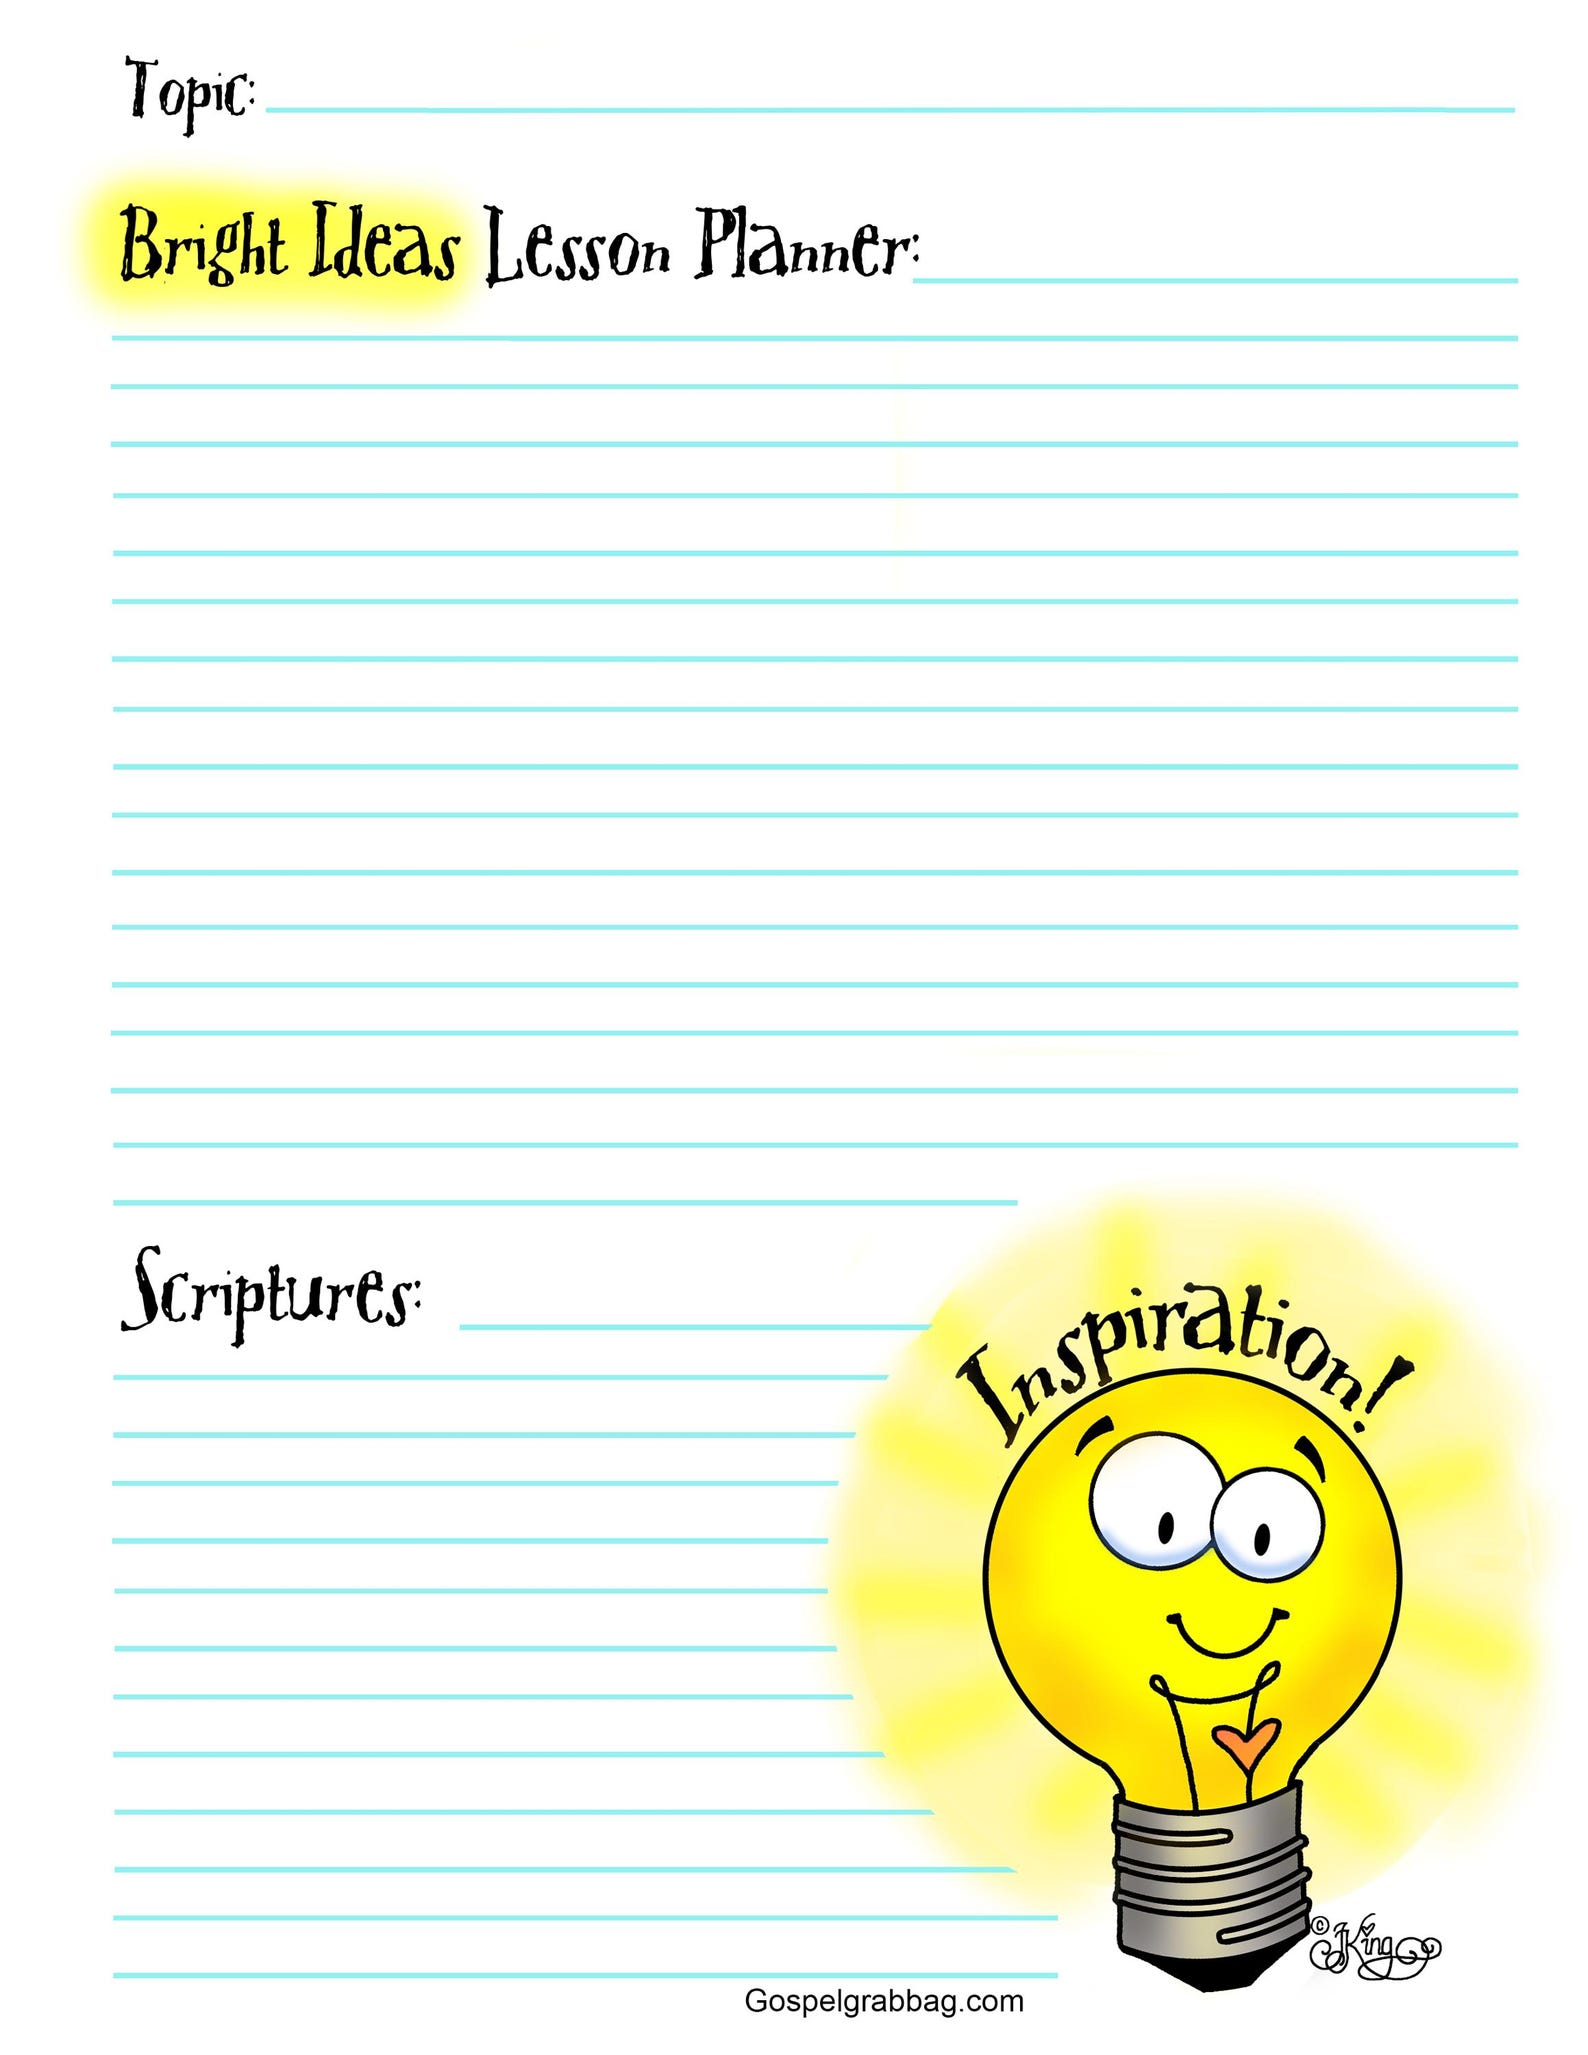 Topic:
Bright Ideas Lesson Planner:
Scriptures:
Inspiration!
© JKing
Gospelgrabbag.com